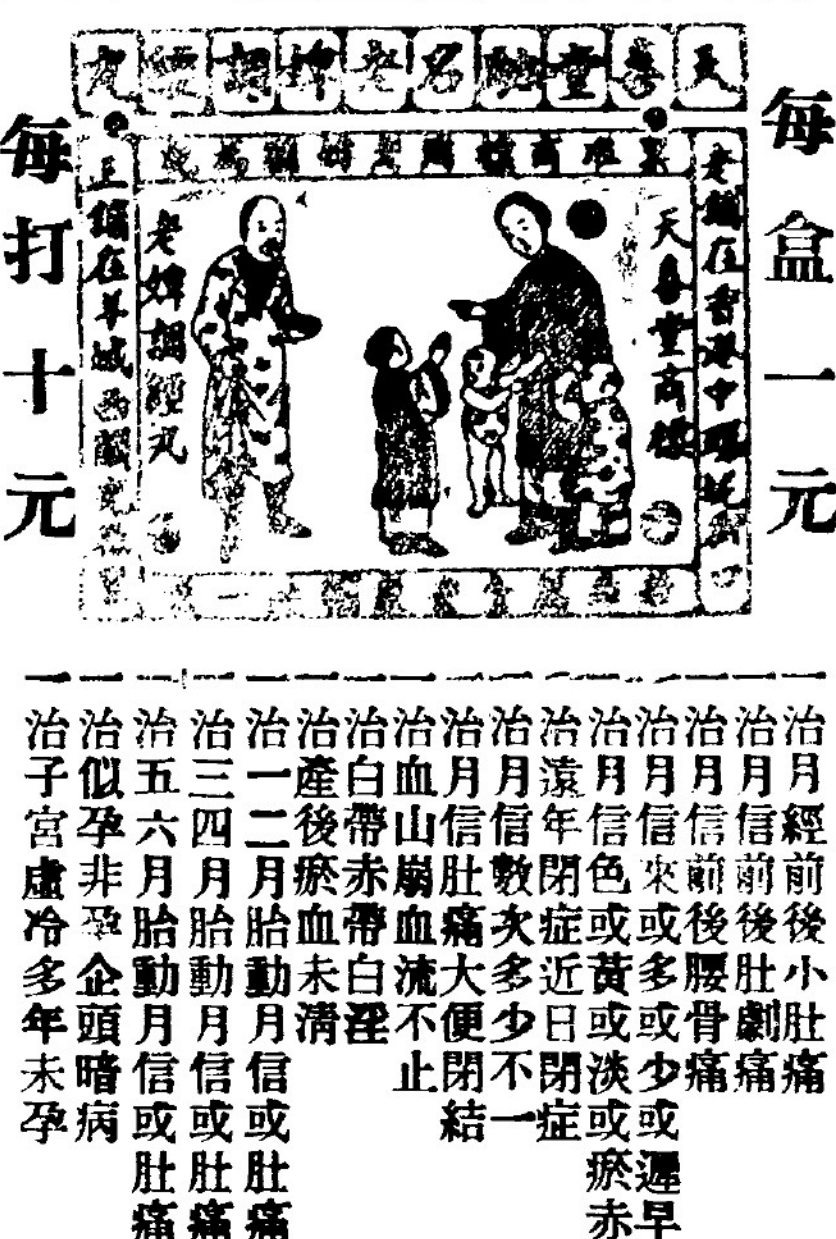 天喜堂馳名老婢調經丸
每盒一元
老鋪在香港中環
天喜堂商標
老婢調經丸
正鋪在羊城西關
每打十元
一治月經前後小肚痛
一治月信前後肚劇痛
一治月信前後腰骨痛
一治月信來或多或少或遲早
一治月信色或黃或淡或瘀赤
一治遠年閉症近日閉症
一治月信數次多少不一
一治月信肚痛大便閉結
一治血山崩血流不止
一治白帶赤帶白淫
一治產後瘀血未清
一治一二月胎動月信或肚痛
一治三四月胎動月信或肚痛
一治五六月胎動月信或肚痛
一治似孕非孕企頭暗病
一治子宮虛冷多年未孕